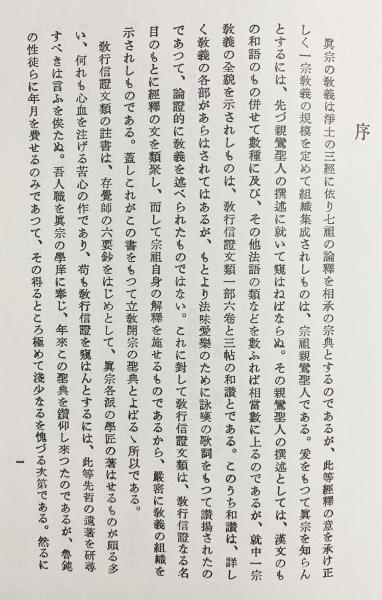 序
眞宗の敎義は淨土の三經に依り七祖の論釋を相承の宗典とするのであるが、此等經釋の意を承け正
しく一宗敎義の規模を定めて組織集成されしものは、宗祖親鸞聖人である。爰をもつて眞宗を知らん
とするには、先づ親鸞聖人の撰述に就いて窺はねばならぬ。その親鸞聖人の撰述としては、漢文のも
の和語のもの併せて數種に及び、その他法語の類などを數ふれば相當數に上るのであるが、就中一宗
敎義の全貌を示されしものは、敎行信證文類一部六卷と三帖の和讃とである。このうち和讃は、詳し
く敎義の各部があらはされてはあるが、もとより法味愛樂のために詠嘆の歌詞をもつて讃揚されたの
であつて、論證的に敎義を述べられたものではない。これに對して敎行信證文類は、敎行信證なる名
目のもとに經釋の文を類聚し、而して宗祖自身の解釋を施せるものであるから、嚴密に敎義の組織を
示されしものである。蓋しこれがこの書をもつて立敎開宗の聖典とよばるゝ所以である。
敎行信證文類の註書は、存覺師の六要鈔をはじめとして、眞宗各派の學匠の著はせるものが頗る多
い、何れも心血を注げる苦心の作であり、苟も敎行信證を窺はんとするには、此等先哲の遺著を硏尋
すべきは言ふを俟たぬ。吾人職を眞宗の學庠に奉じ、年來この聖典を讃仰し來つたのであるが、魯鈍
の性徒らに年月を費せるのみであつて、その得るところ極めて淺少なるを愧づる次第である。然るに
一